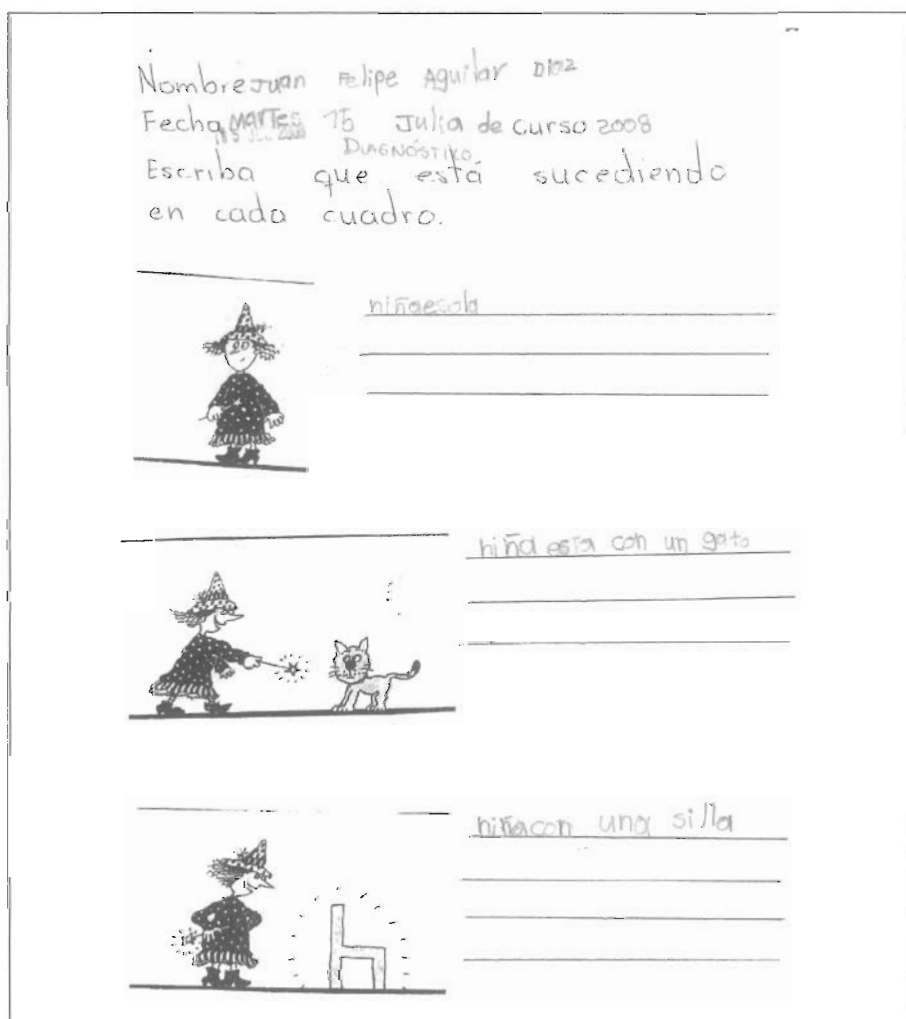 Nombre Juan Felipe Aguilar Diaz
Fecha Martes 15 Julia de curso 2008
15 JUL 2008
DIAGNÓSTIKO
Escriba que está sucediendo
en cada cuadro.
niñaesola
niña esta con un gato
niñacon una silla